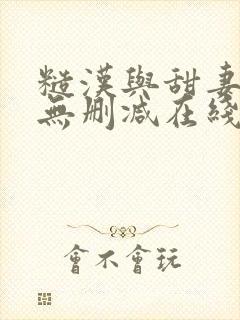 糙漢與甜妻
無刪減在綫
會不會玩